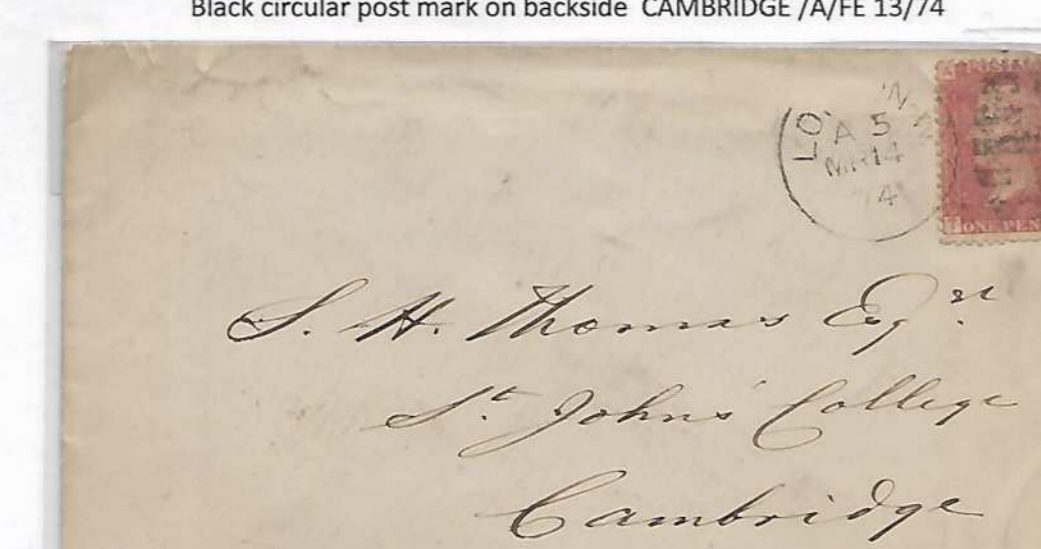 Black circular post mark on backside CAMBRIDGE /A/FE 13/74
A 5
MR 14
74
ONE PEN
S. H. Thomas Esqre.
St. John's College
Cambridge